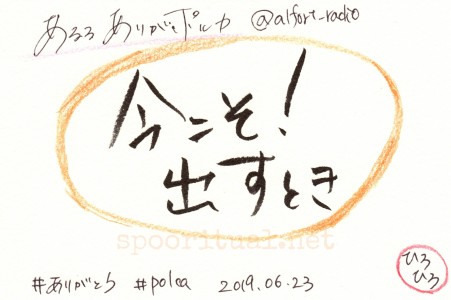 あるる ありがとポルカ @alfort_radio
今こそ!
出すとき
spooritual.net
#ありがとう #polca 2019.06.23
ひろ
ひろ